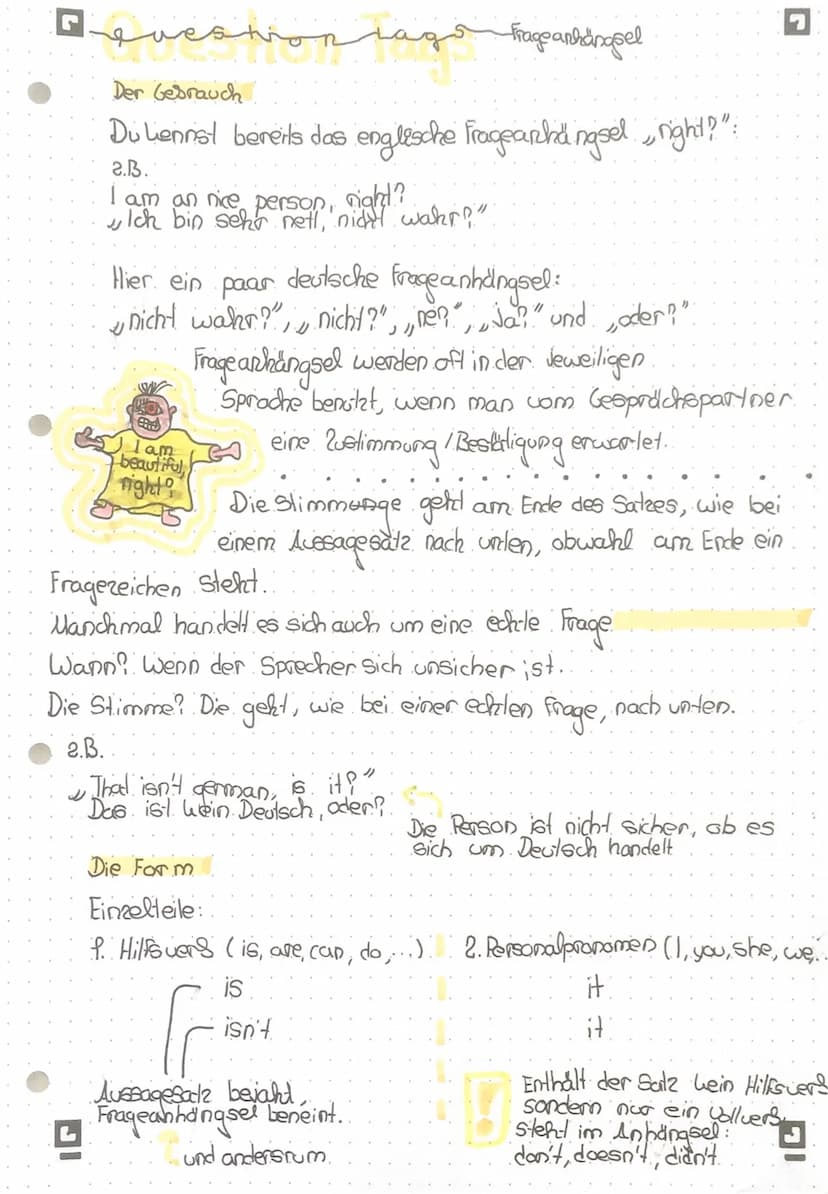 Question Tags Frageanhängsel
Question Tags
Der Gebrauch
Du kennst bereits das englische Frageanhängsel „right?":
z.B.
I am an nice person, right?
„Ich bin sehr nett, nicht wahr?"
Hier ein paar deutsche Frageanhängsel:
„nicht wahr?", „nicht?", „ne?", „ja?" und „oder?"
Frageanhängsel werden oft in der jeweiligen
Sprache benutzt, wenn man vom Gesprächspartner
eine Zustimmung/Bestätigung erwartet.
I am
beautiful,
right?
Die Stimmunge geht am Ende des Satzes, wie bei
einem Aussagesatz nach unten, obwahl am Ende ein
Fragezeichen steht.
Manchmal handelt es sich auch um eine echte Frage
Wann? Wenn der Sprecher sich unsicher ist.
Die Stimme? Die geht, wie bei einer echten Frage, nach unten.
z.B.
„That isn't german, is it?"
Das ist kein Deutsch, oder?
Die Person ist nicht sicher, ob es
sich um Deutsch handelt
Die Form
Einzelteile:
1. Hilfsverb (is, are, can, do, ...) 2. Personalpronomen (I, you, she, we, ..
is it
isn't it
Aussagesatz bejaht,
Frageanhängsel beneint.
und andersrum
! Enthält der Satz kein Hilfsverb
sondern nur ein Vollverb,
steht im Anhängsel:
don't, doesn't, didn't